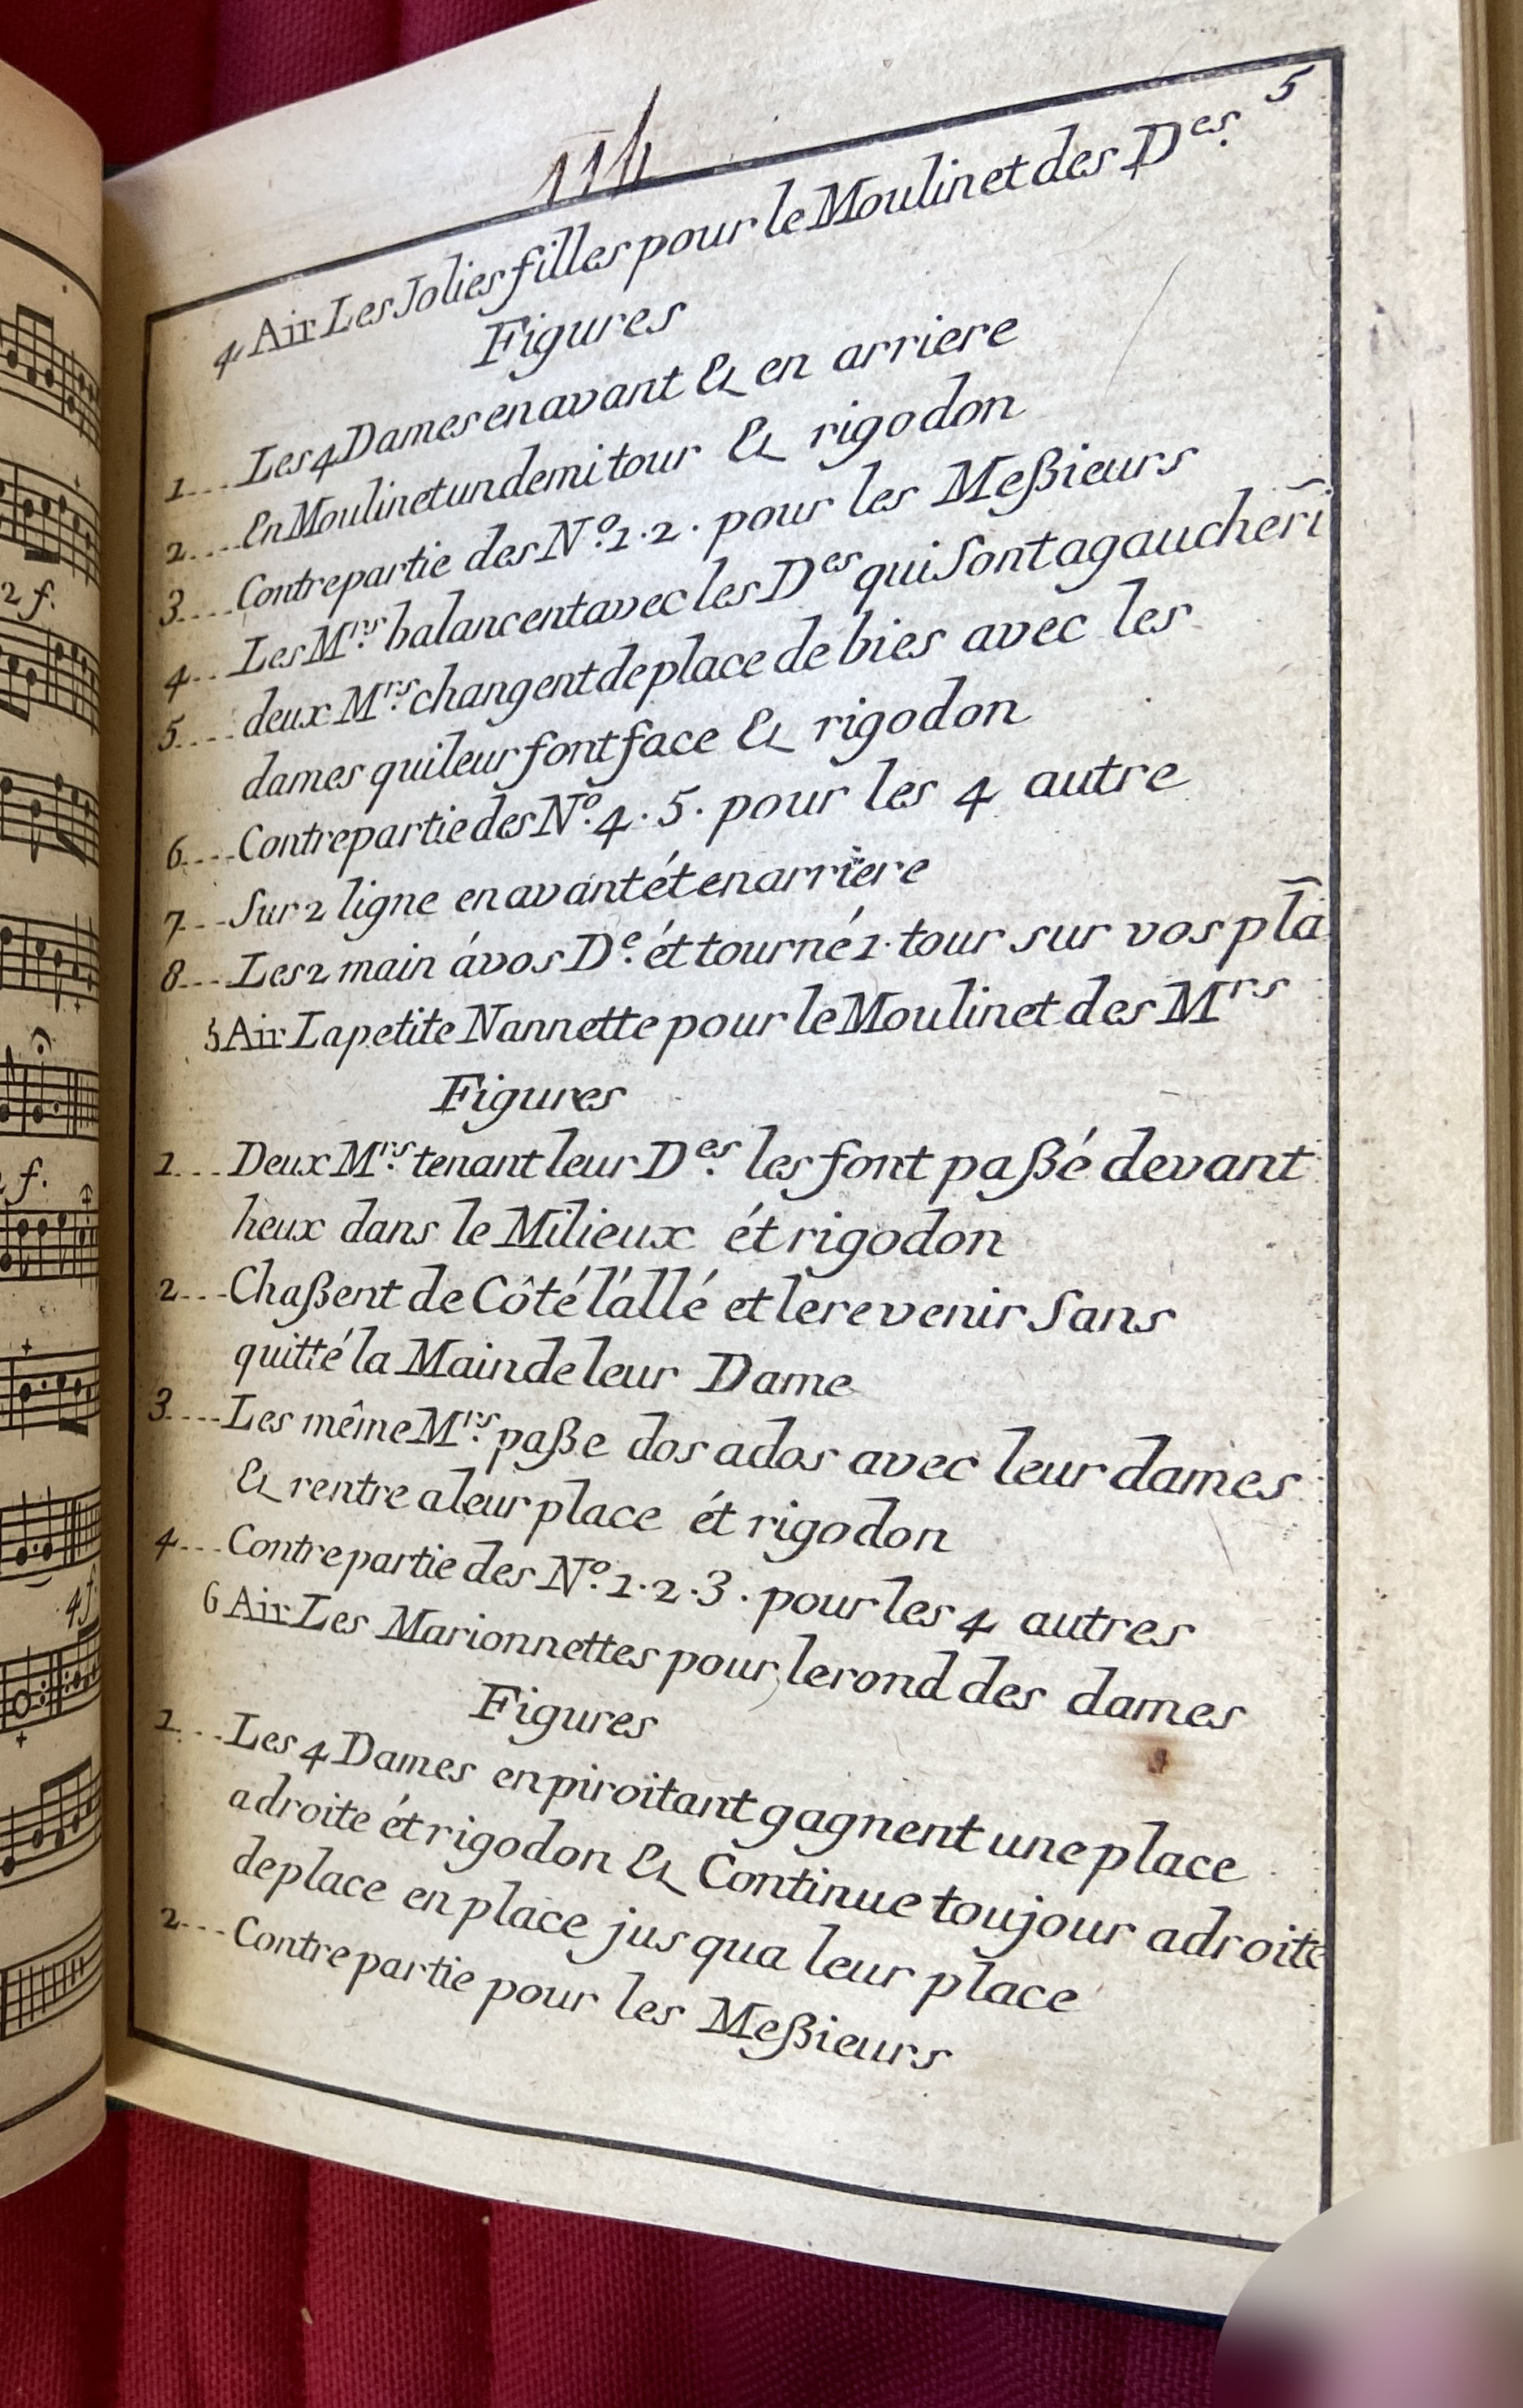 114
5
4 Air Les Jolies filles pour le Moulinet des D.es
Figures
1... Les 4 Dames en avant & en arriere
2.... En Moulinet un demi tour & rigodon
3.... Contrepartie des N.o 1. 2. pour les Meßieurs
4... Les M.rs balancent avec les D.es qui sont a gauche ri
5.... deux M.rs changent de place de bies avec les
dames qui leur font face & rigodon
6.... Contrepartie des N.o 4. 5. pour les 4 autre
7... Sur 2 ligne en avant ét en arriere
8... Les 2 main á vos D.e ét tourné 1. tour sur vos pla
5 Air La petite Nannette pour le Moulinet des Mrs
Figures
1... Deux M.rs tenant leur D.es les font paßé devant
heux dans le Milieux ét rigodon
2... Chaßent de Côté l'állé et le revenir sans
quitté la Main de leur Dame
3.... Les même M.rs paße dos a dos avec leur dames
& rentre a leur place ét rigodon
4... Contrepartie des N.o 1. 2. 3. pour les 4 autres
6 Air Les Marionnettes pour le rond des dames
Figures
1... Les 4 Dames en piroitant gagnent une place
a droite ét rigodon & Continue toujour a droite
de place en place jus qua leur place
2... Contre partie pour les Meßieurs
2 f.
f.
4 f.